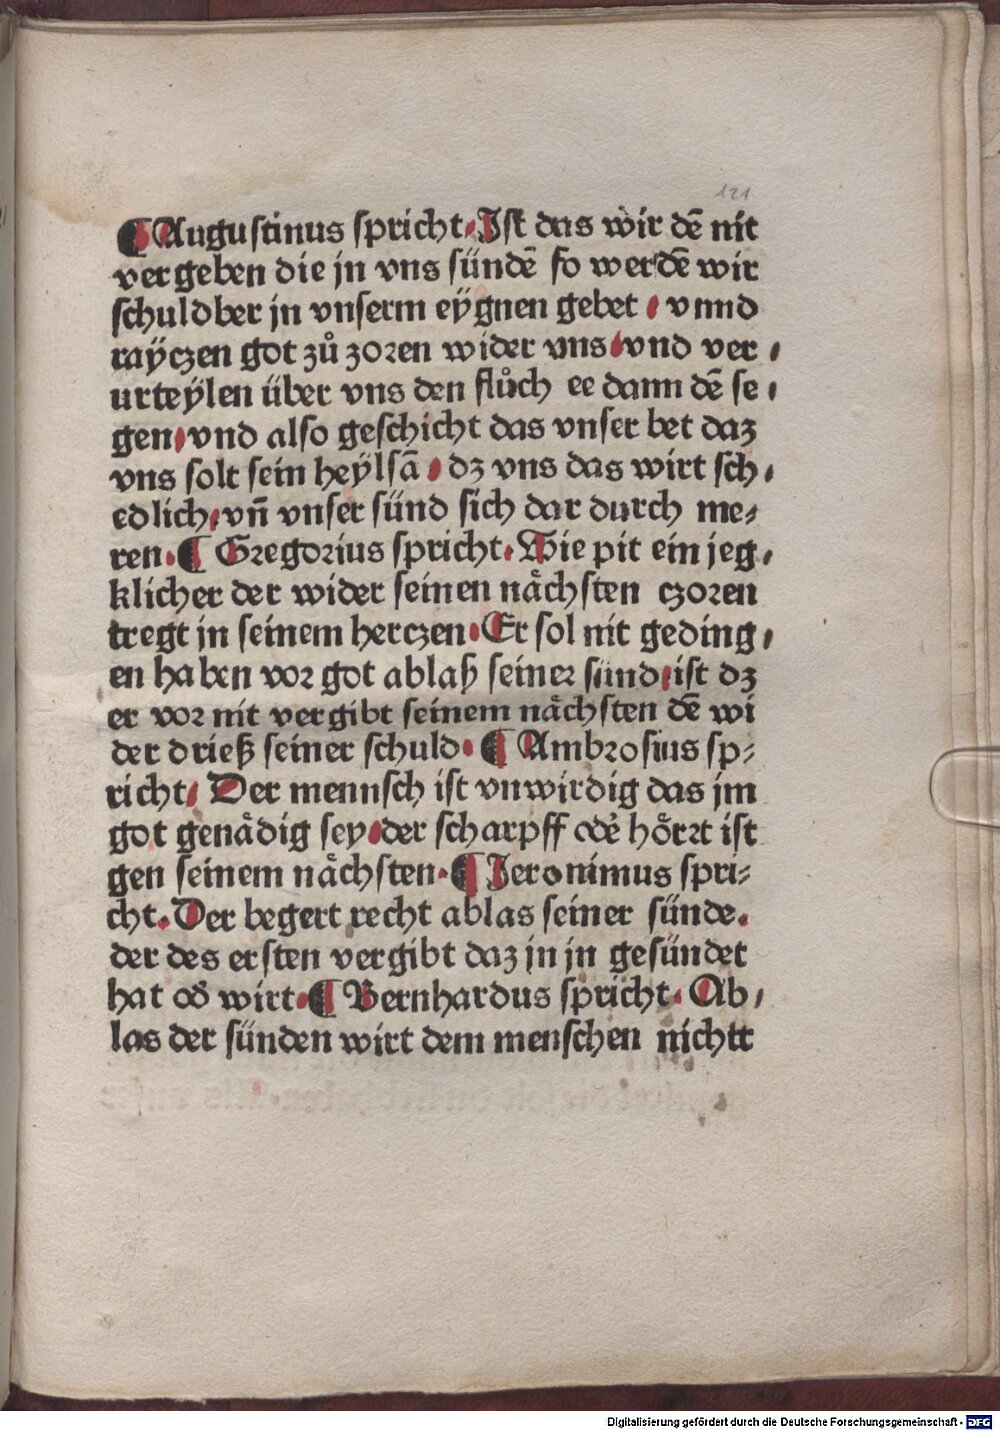 121
¶ Augustinus spricht. Ist das wir dē nit
vergeben die jn vns sündē so werdē wir
schuldber jn vnserm eÿgnen gebet / vnnd
raÿczen got zů zoren wider vns / vnd ver /
urteÿlen über vns den flůch ee dann dē se /
gen / vnd also geschicht das vnser bet daz
vns solt sein heÿlsā / dz vns das wirt sch /
edlich / vn̄ vnser sünd sich dar durch me⸗
ren. ¶ Gregorius spricht. Wie pit ein jeg /
klicher der wider seinen nåchsten czoren
tregt jn seinem herczen. Er sol nit geding /
en haben vor got ablaß seiner sünd / ist dz
er vor nit vergibt seinem nåchsten dē wi
der drieß seiner schuld. ¶ Ambrosius sp⸗
richt / Der mennsch ist vnwirdig das jm
got genådig sey / der scharpff odė hörrt ist
gen seinem nåchsten. ¶ Jeronimus spri⸗
cht. Der begert recht ablas seiner sünde.
der des ersten vergibt daz jn jn gesündet
hat od̓ wirt. ¶ Bernhardus spricht. Ab /
las der sünden wirt dem menschen nichtt
Digitalisierung gefördert durch die Deutsche Forschungsgemeinschaft - DFG